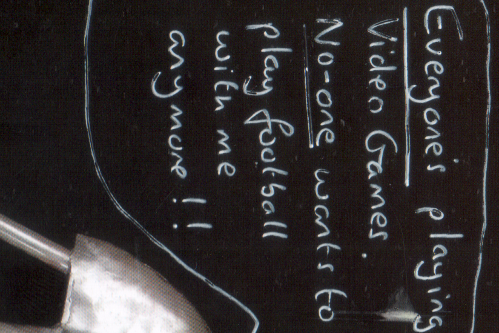 Everyone's playing
Video Games.
No-one wants to
play football
with me
anymore !!